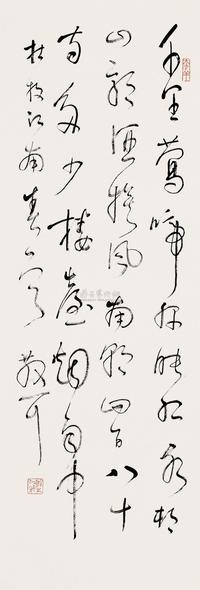 千里鶯啼綠映紅水村
山郭酒旗風南朝四百八十
寺多少樓臺煙雨中
杜牧江南春 散耳